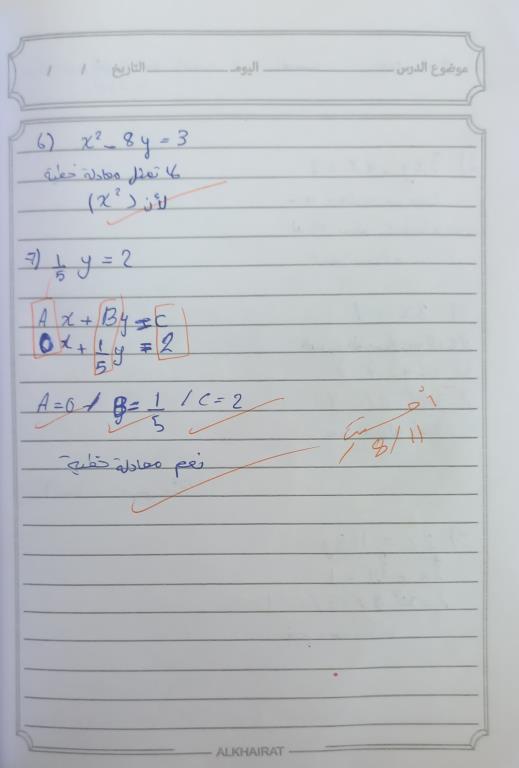 موضوع الدرس ــــــــ اليوم ــــــــ التاريخ / /
6) x² - 8y = 3
لا تمثل معادلة خطية
لأن (x²)
7) 1/5 y = 2
A x + By = C
0x + 1/5 y = 2
A = 0 / B = 1/5 / C = 2
أحسنت
8/11
نعم معادلة خطية
ALKHAIRAT